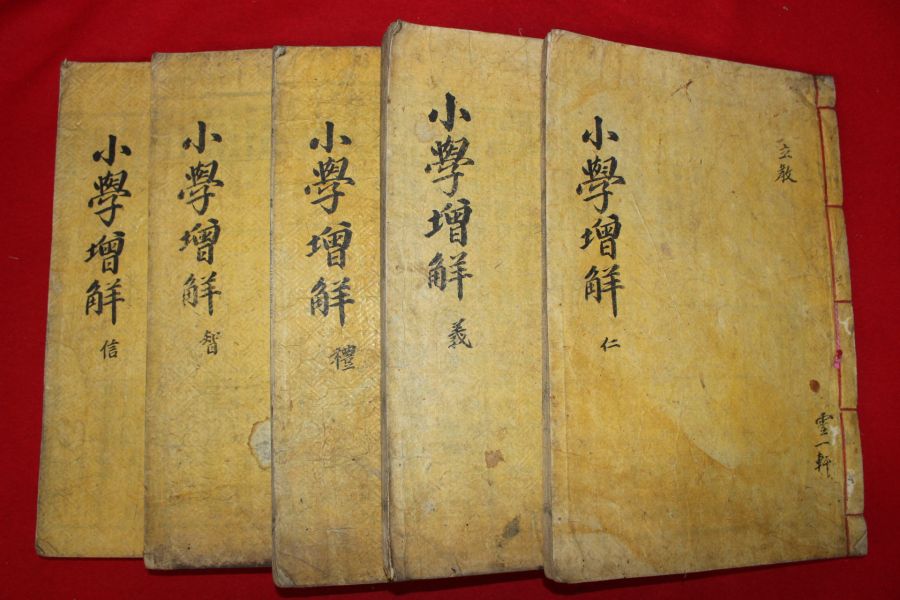 立教
小學增解 仁
雲一軒
小學增解 義
小學增解 禮
小學增解 智
小學增解 信